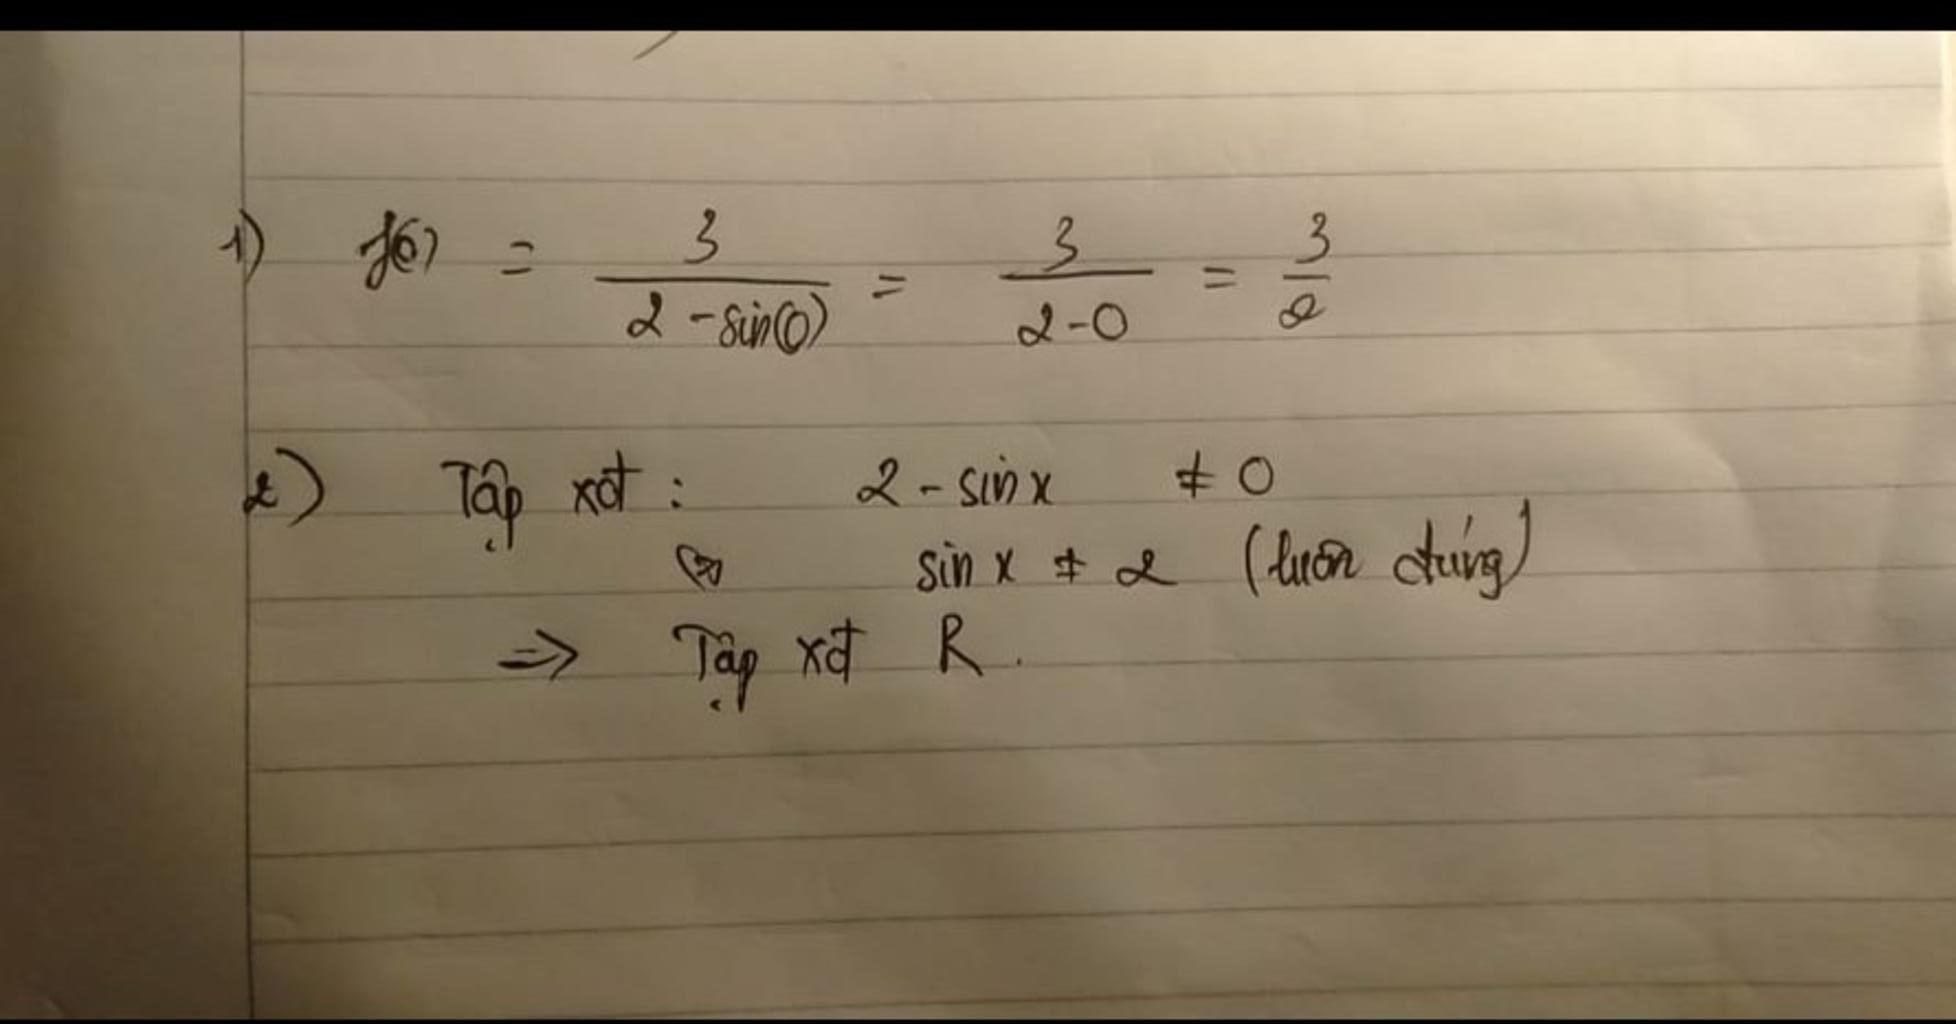 1) f(0) = 3/(2 - sin(0)) = 3/(2-0) = 3/2
2) Tập xđ : 2 - sin x ≠ 0
⇔ sin x ≠ 2 (luôn đúng)
⇒ Tập xđ R.